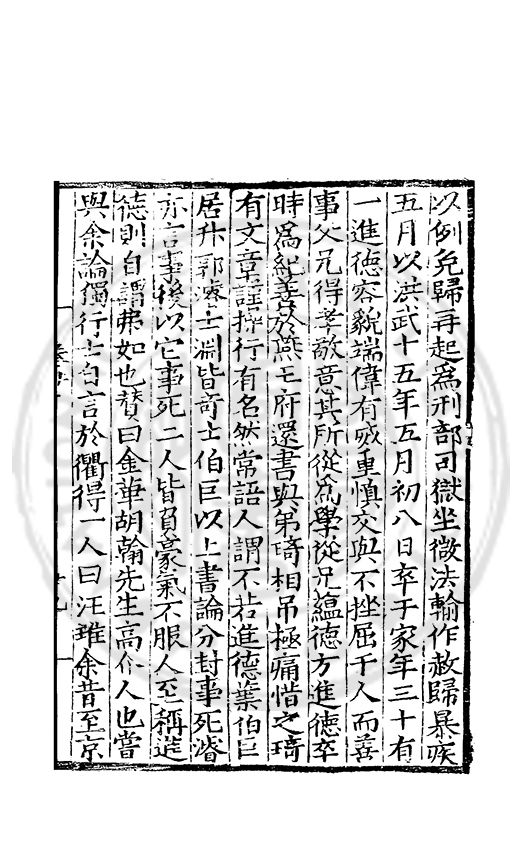 以例免歸再起為刑部司獄坐微法輸作赦歸暴疾
五月以洪武十五年五月初八日卒于家年三十有
一進德容貌端偉有威重慎交與不挫屈于人而喜
事父兄得孝敬意其所從為學從兄蘊德方進德卒
時為紀善於燕王府還書與弟琦相吊極痛惜之琦
有文章謹操行有名然常語人謂不若進德葉伯巨
居升鄭濬士淵皆奇士伯巨以上書論分封事死濬
亦言事後以它事死二人皆負豪氣不服人至稱進
德則自謂弗如也贊曰金華胡翰先生高介人也嘗
與余論獨行士自言於衢得一人曰汪琟余昔至京